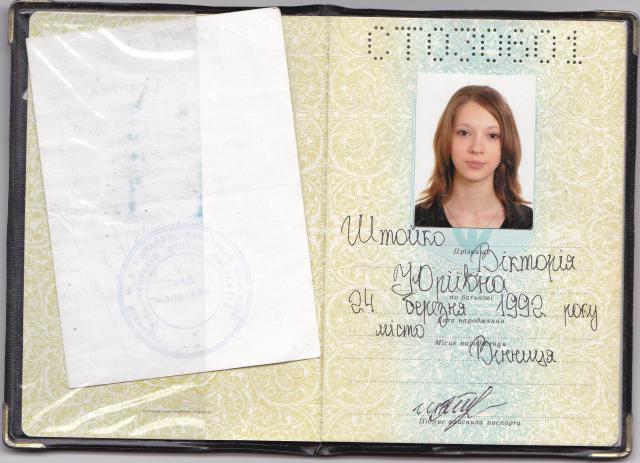 СТ030601
Штойко
Прізвище
Вікторія
Юріївна
по батькові
24 березня 1992 року
Дата народження
місто
Місце народження
Вінниця
Підпис власника паспорта